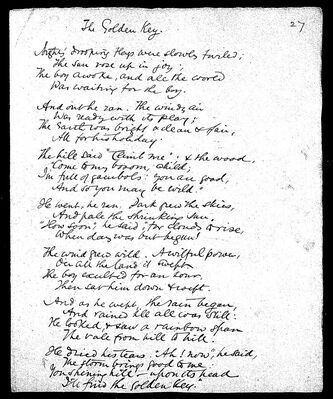 27
The Golden Key.
Night's drooping flags were slowly furled;
The sun rose up in joy;
The boy awoke, and all the world
Was waiting for the boy.
And out he ran. The windy air
Was ready with its play;
The Earth was bright & clean & fair,
All for his holiday.
The hill said "Climb me"; & the wood,
"Come to my bosom, child;
I'm full of gambols: you are good,
And so you may be wild."
He went, he ran. Dark grew the skies,
And pale the shrinking sun.
"How soon", he said, "for clouds to rise,
When day was but begun!"
The wind grew wild. A wilful power,
O'er all the land it swept.
The boy exulted for an hour,
Then sat him down & wept.
And as he wept, the rain began,
And rained till all was still:
He looked, & saw a rainbow span
The vale from hill to hill.
He dried his tears. "Ah! now", he said,
"The storm brings good to me:
Yon shining hill—upon its head
I'll find the Golden Key."